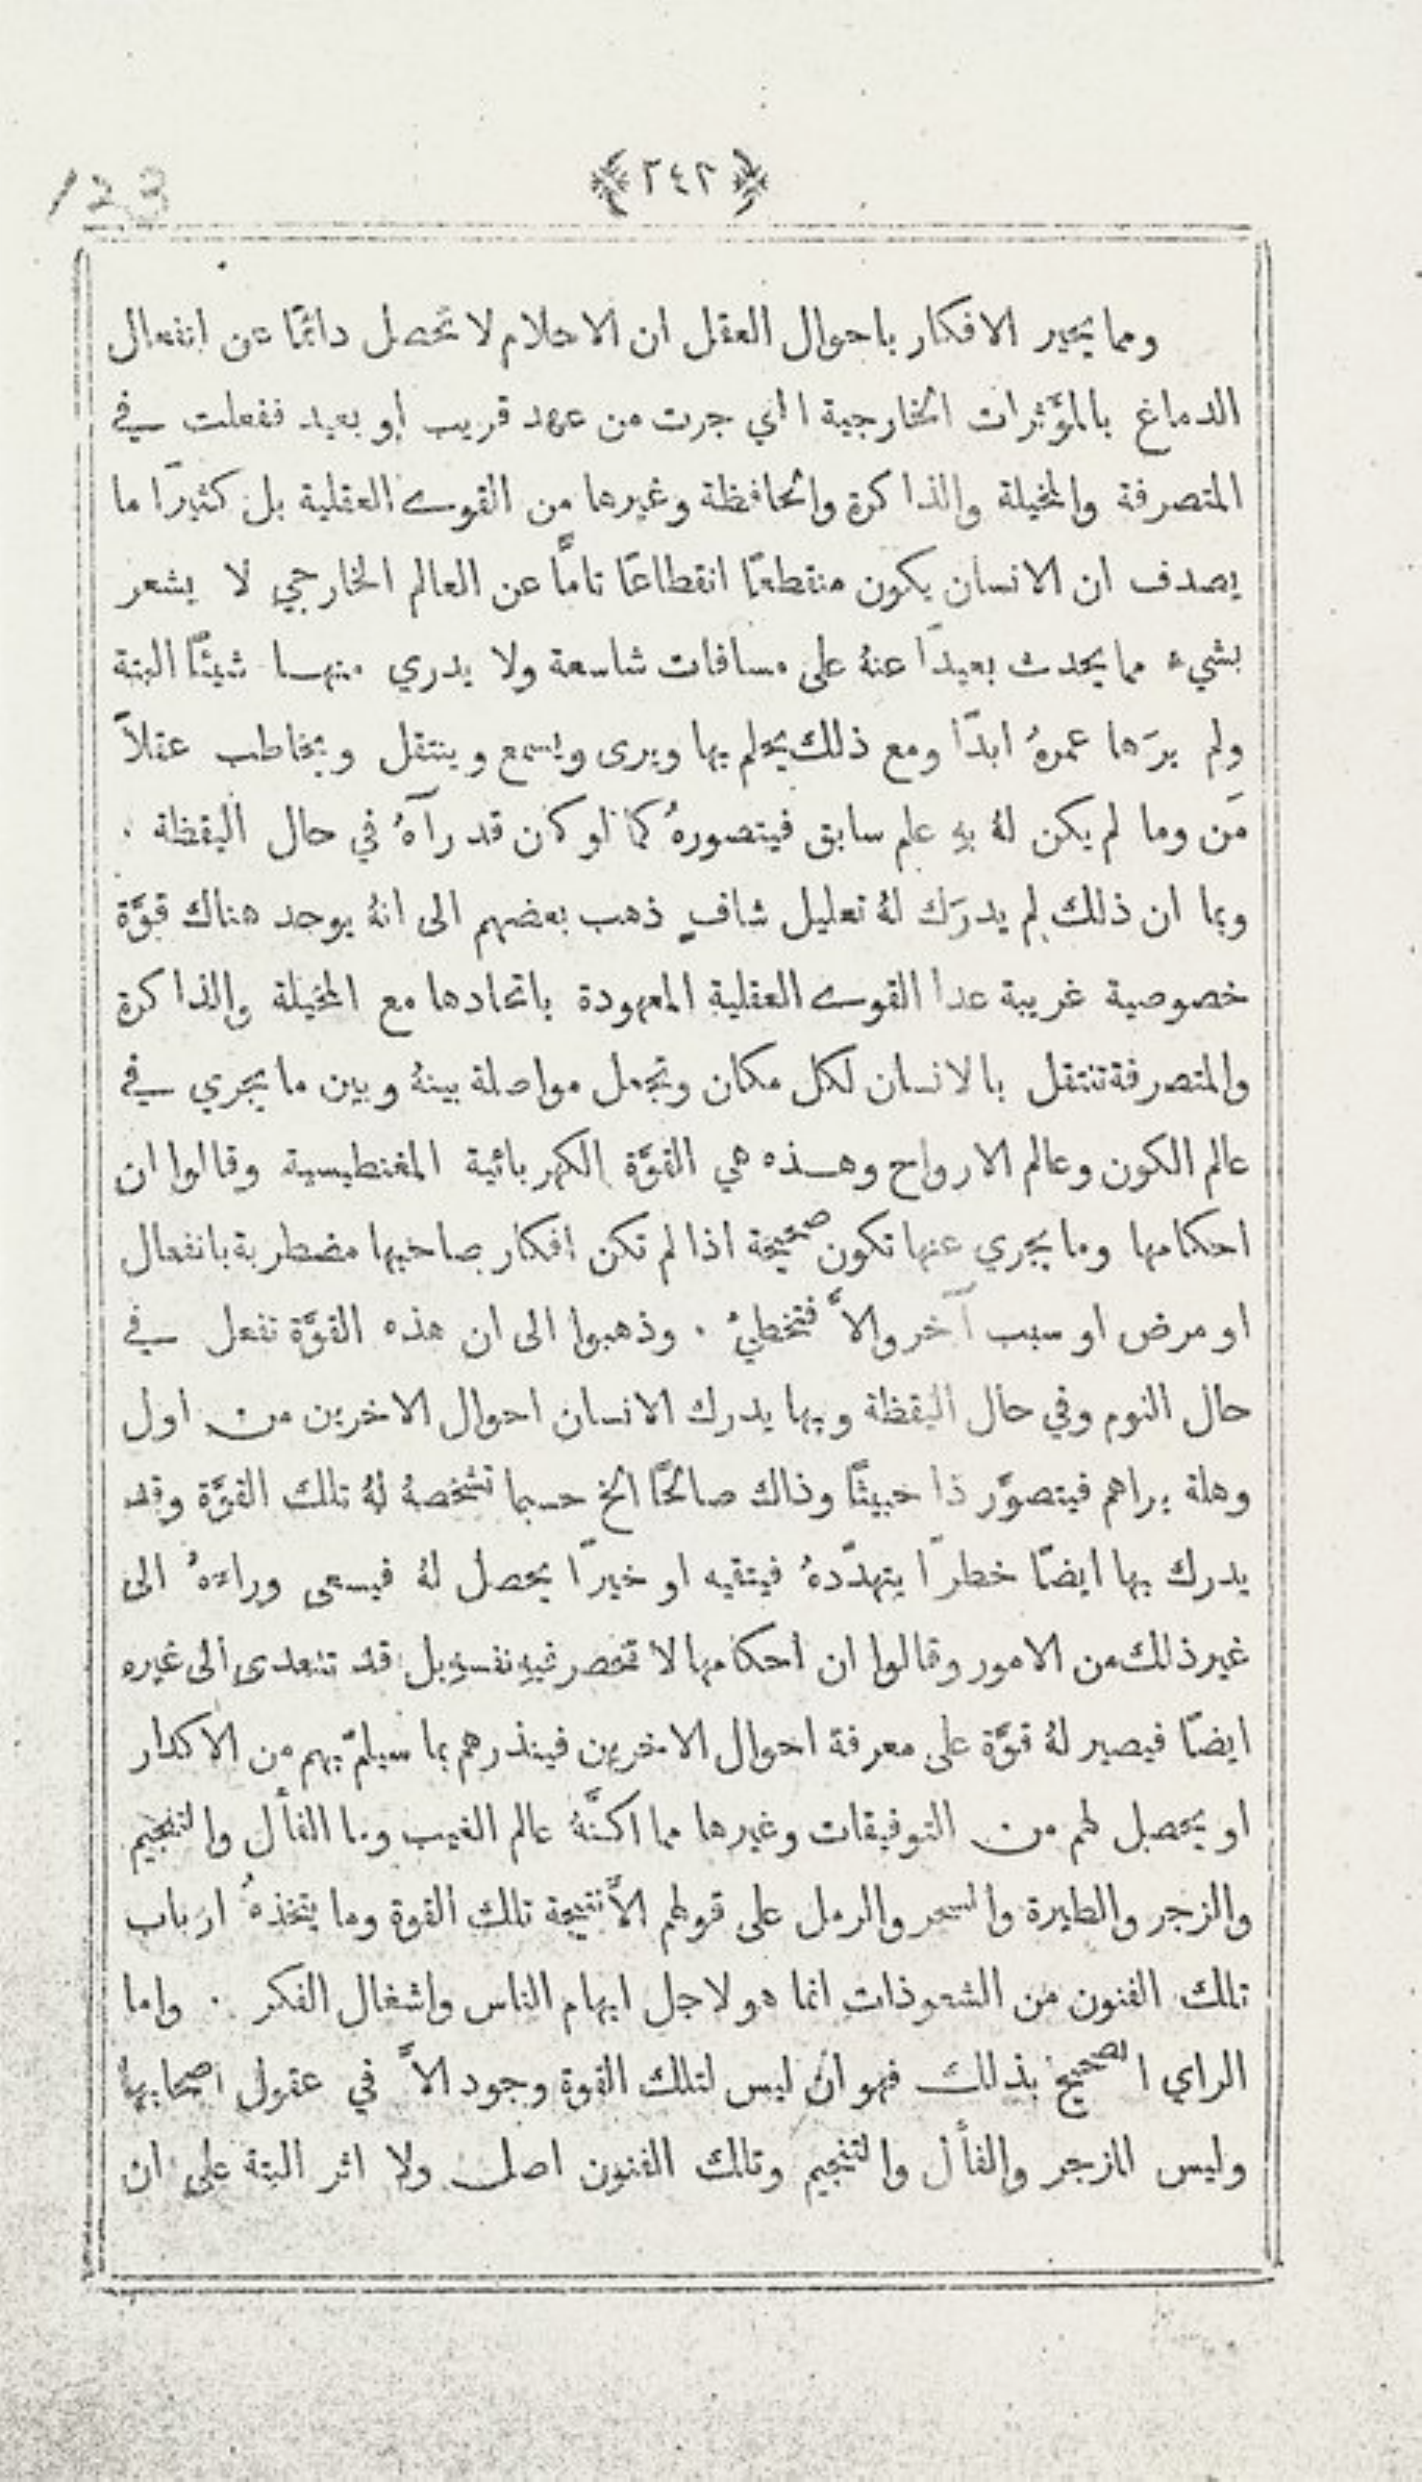 ﴿ ٢٤٢ ﴾
123
ومما يحير الافكار باحوال العقل ان الاحلام لا تحصل دائمًا عن انفعال
الدماغ بالمؤَثرات الخارجية التي جرت من عهد قريب او بعيد ففعلت في
المتصرفة والمخيلة والذاكرة والحافظة وغيرها من القوى العقلية بل كثيرًا ما
يصدف ان الانسان يكون منقطعًا انقطاعًا تامًّا عن العالم الخارجي لا يشعر
بشيء مما يحدث بعيدًا عنهُ على مسافات شاسعة ولا يدري منها شيئًا البتة
ولم يرَها عمرهُ ابدًا ومع ذلك يحلم بها ويرى ويسمع وينتقل ويخاطب عقلاً
مَن وما لم يكن لهُ بهِ علم سابق فيتصورهُ كما لو كان قد رآهُ في حال اليقظة .
وبما ان ذلك لم يدرَك لهُ تعليل شافٍ ذهب بعضهم الى انهُ يوجد هناك قوَّة
خصوصية غريبة عدا القوى العقلية المعهودة باتحادها مع المخيلة والذاكرة
والمتصرفة تنتقل بالانسان لكل مكان وتجعل مواصلة بينهُ وبين ما يجري في
عالم الكون وعالم الارواح وهذه هي القوَّة الكهربائية المغنطيسية وقالوا ان
احكامها وما يجري عنها تكون صحيحة اذا لم تكن افكار صاحبها مضطربة بانفعال
او مرض او سبب آخر والاَّ فتخطئُ . وذهبوا الى ان هذه القوَّة تفعل في
حال النوم وفي حال اليقظة وبها يدرك الانسان احوال الاخرين من اول
وهلة يراهم فيتصوَّر ذا خبيثًا وذاك صالحًا الخ حسبما تشخصهُ لهُ تلك القوَّة وقد
يدرك بها ايضًا خطرًا يتهدّدهُ فيتقيه او خيرًا يحصل لهُ فيسعى وراءهُ الى
غير ذلك من الامور وقالوا ان احكامها لا تنحصر فيهِ نفسهِ بل قد تتعدى الى غيره
ايضًا فيصير لهُ قوَّة على معرفة احوال الاخرين فينذرهم بما سيلمّ بهم من الاكدار
او يحصل لهم من التوفيقات وغيرها مما اكنَّهُ عالم الغيب وما الفأل والتنجيم
والزجر والطيرة والسحر والرمل على قولهم الاَّ نتيجة تلك القوة وما يتخذهُ ارباب
تلك الفنون من الشعوذات انما هو لاجل ايهام الناس واشغال الفكر . واما
الراي الصحيح بذلك فهو ان ليس لتلك القوة وجود الاَّ في عقول اصحابها
وليس للزجر والفأل والتنجيم وتلك الفنون اصل ولا اثر البتة على ان